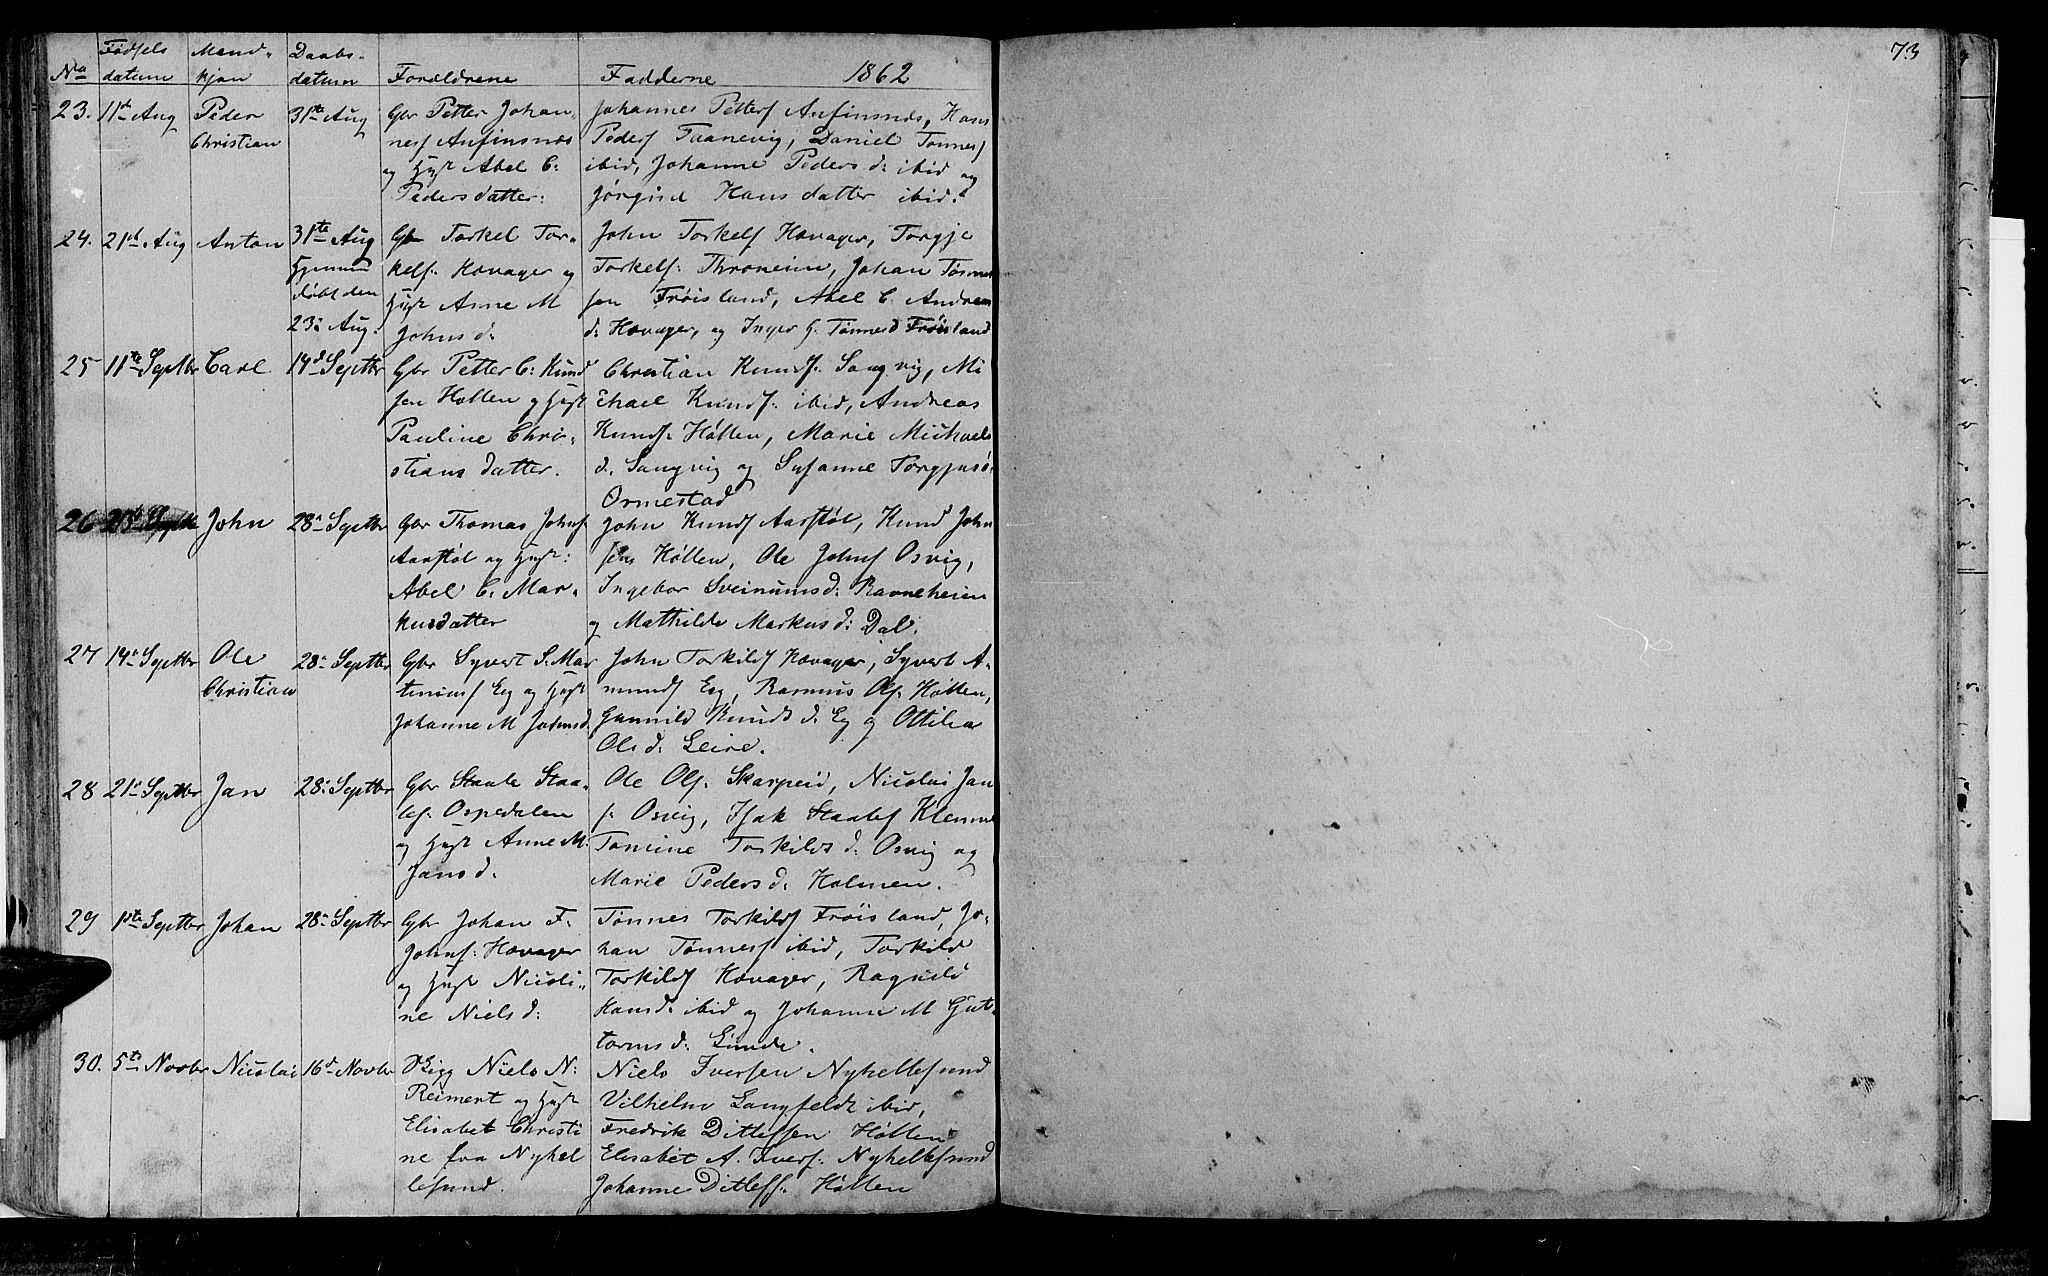 73
No Fødsels datum Mand- kjøn Daabs- datum Forældrene Fadderne 1862
23. 11te Aug Peder Christian 31te Aug
Gbr Petter Johan-
nesf Anfinsnæs
og Hust Abel C:
Pedersdatter:
Johannes Pettersf Anfinsnæs, Hans
Pedersf Taanevig, Daniel Tønnesf
ibid, Johanne Peders d: ibid og
Jørgine Hansdatter ibid.
24. 21d Aug Anton 31te Aug
Hjemme
døbt den
23: Aug.
Gbr Torkel Tor-
kelf: Høvager og
Hust Anne M
Johns d.
John Torkelf Høvager, Torgje
Torkelf: Throneim, Johan Tønne
sen Frøisland, Abel C. Andrea
d: Høvager, og Inger G. Tønnesd Frøisland
25 11te Septbr Carl 14d Septbr
Gbr Petter C: Knud
sen Høllen og Hust
Pauline Chri-
stians datter.
Christian Knudf: Sangvig, Mi
chael Knudf: ibid, Andreas
Knudf: Høllen, Marie Michaels
d. Sangvig og Susanne Torgjusd.
Ormestad
26 21d Septbr John 28: Septbr
Gbr Thomas Johnf
Aarstøl og Hust:
Abel C: Mar-
kusdatter
John Knudf Aarstøl, Knud John
sen Høllen, Ole Johnf Osvig,
Ingebor Sveinums d: Ravneheien
og Mathilde Markus d: Dal.
27 14: Septbr Ole Christian 28: Septbr
Gbr Syvert S. Mar
tiniusf Eg og Hust
Johanne M Johnsd.
John Torkildf Høvager, Syvert A-
mundf Eg, Rasmus Olf. Høllen,
Gunnild Knuds d. Eg og Ottilia
Ols d: Leire.
28 21: Septbr Jan 28: Septbr
Gbr Staale Staa-
lef: Ospedalen
og Hust Anne M.
Jans d.
Ole Olf. Skarpeid, Nicolai Jan
f: Osvig, Isak Staalef Klenne
Tomine Torkilds d: Osvig og
Marie Peders d. Holmen.
29 1ste Septbr Johan 28: Septbr
Gbr Johan F.
Johnf: Høvager
og Hust Nicoli-
ne Niels d:
Tønnes Torkildf Frøisland, Jo-
han Tønnesf ibid, Torkild
Torkildf Høvager, Ragnild
Hansd: ibid og Johanne M Gut-
torms d: Linde.
30. 5te Novbr Nicolai 16d Novbr
Niels N:
Reimert og Hust
Elisabet Christi
ne fra Nyhel
lesund.
Niels Iversen Nyhellesund
Vilhelm Langfeldt ibid,
Fredrik Ditlefsen Høllen
Elisabet A. Iversf: Nyhellesund
Johanne Ditlefs: Høllen